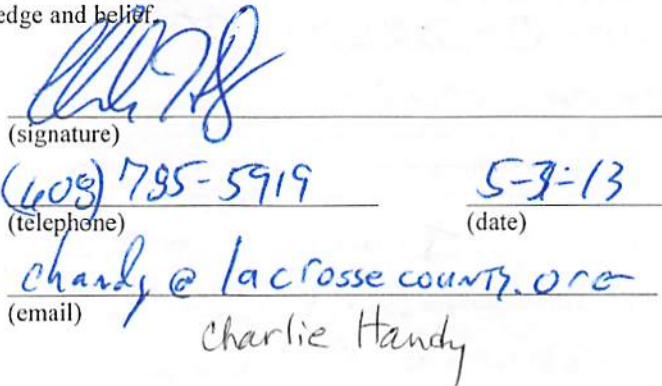 edge and belief.
(signature)
(608) 785-5919
(telephone) (date)
chandy @ lacrossecounty.org
(email)
Charlie Handy